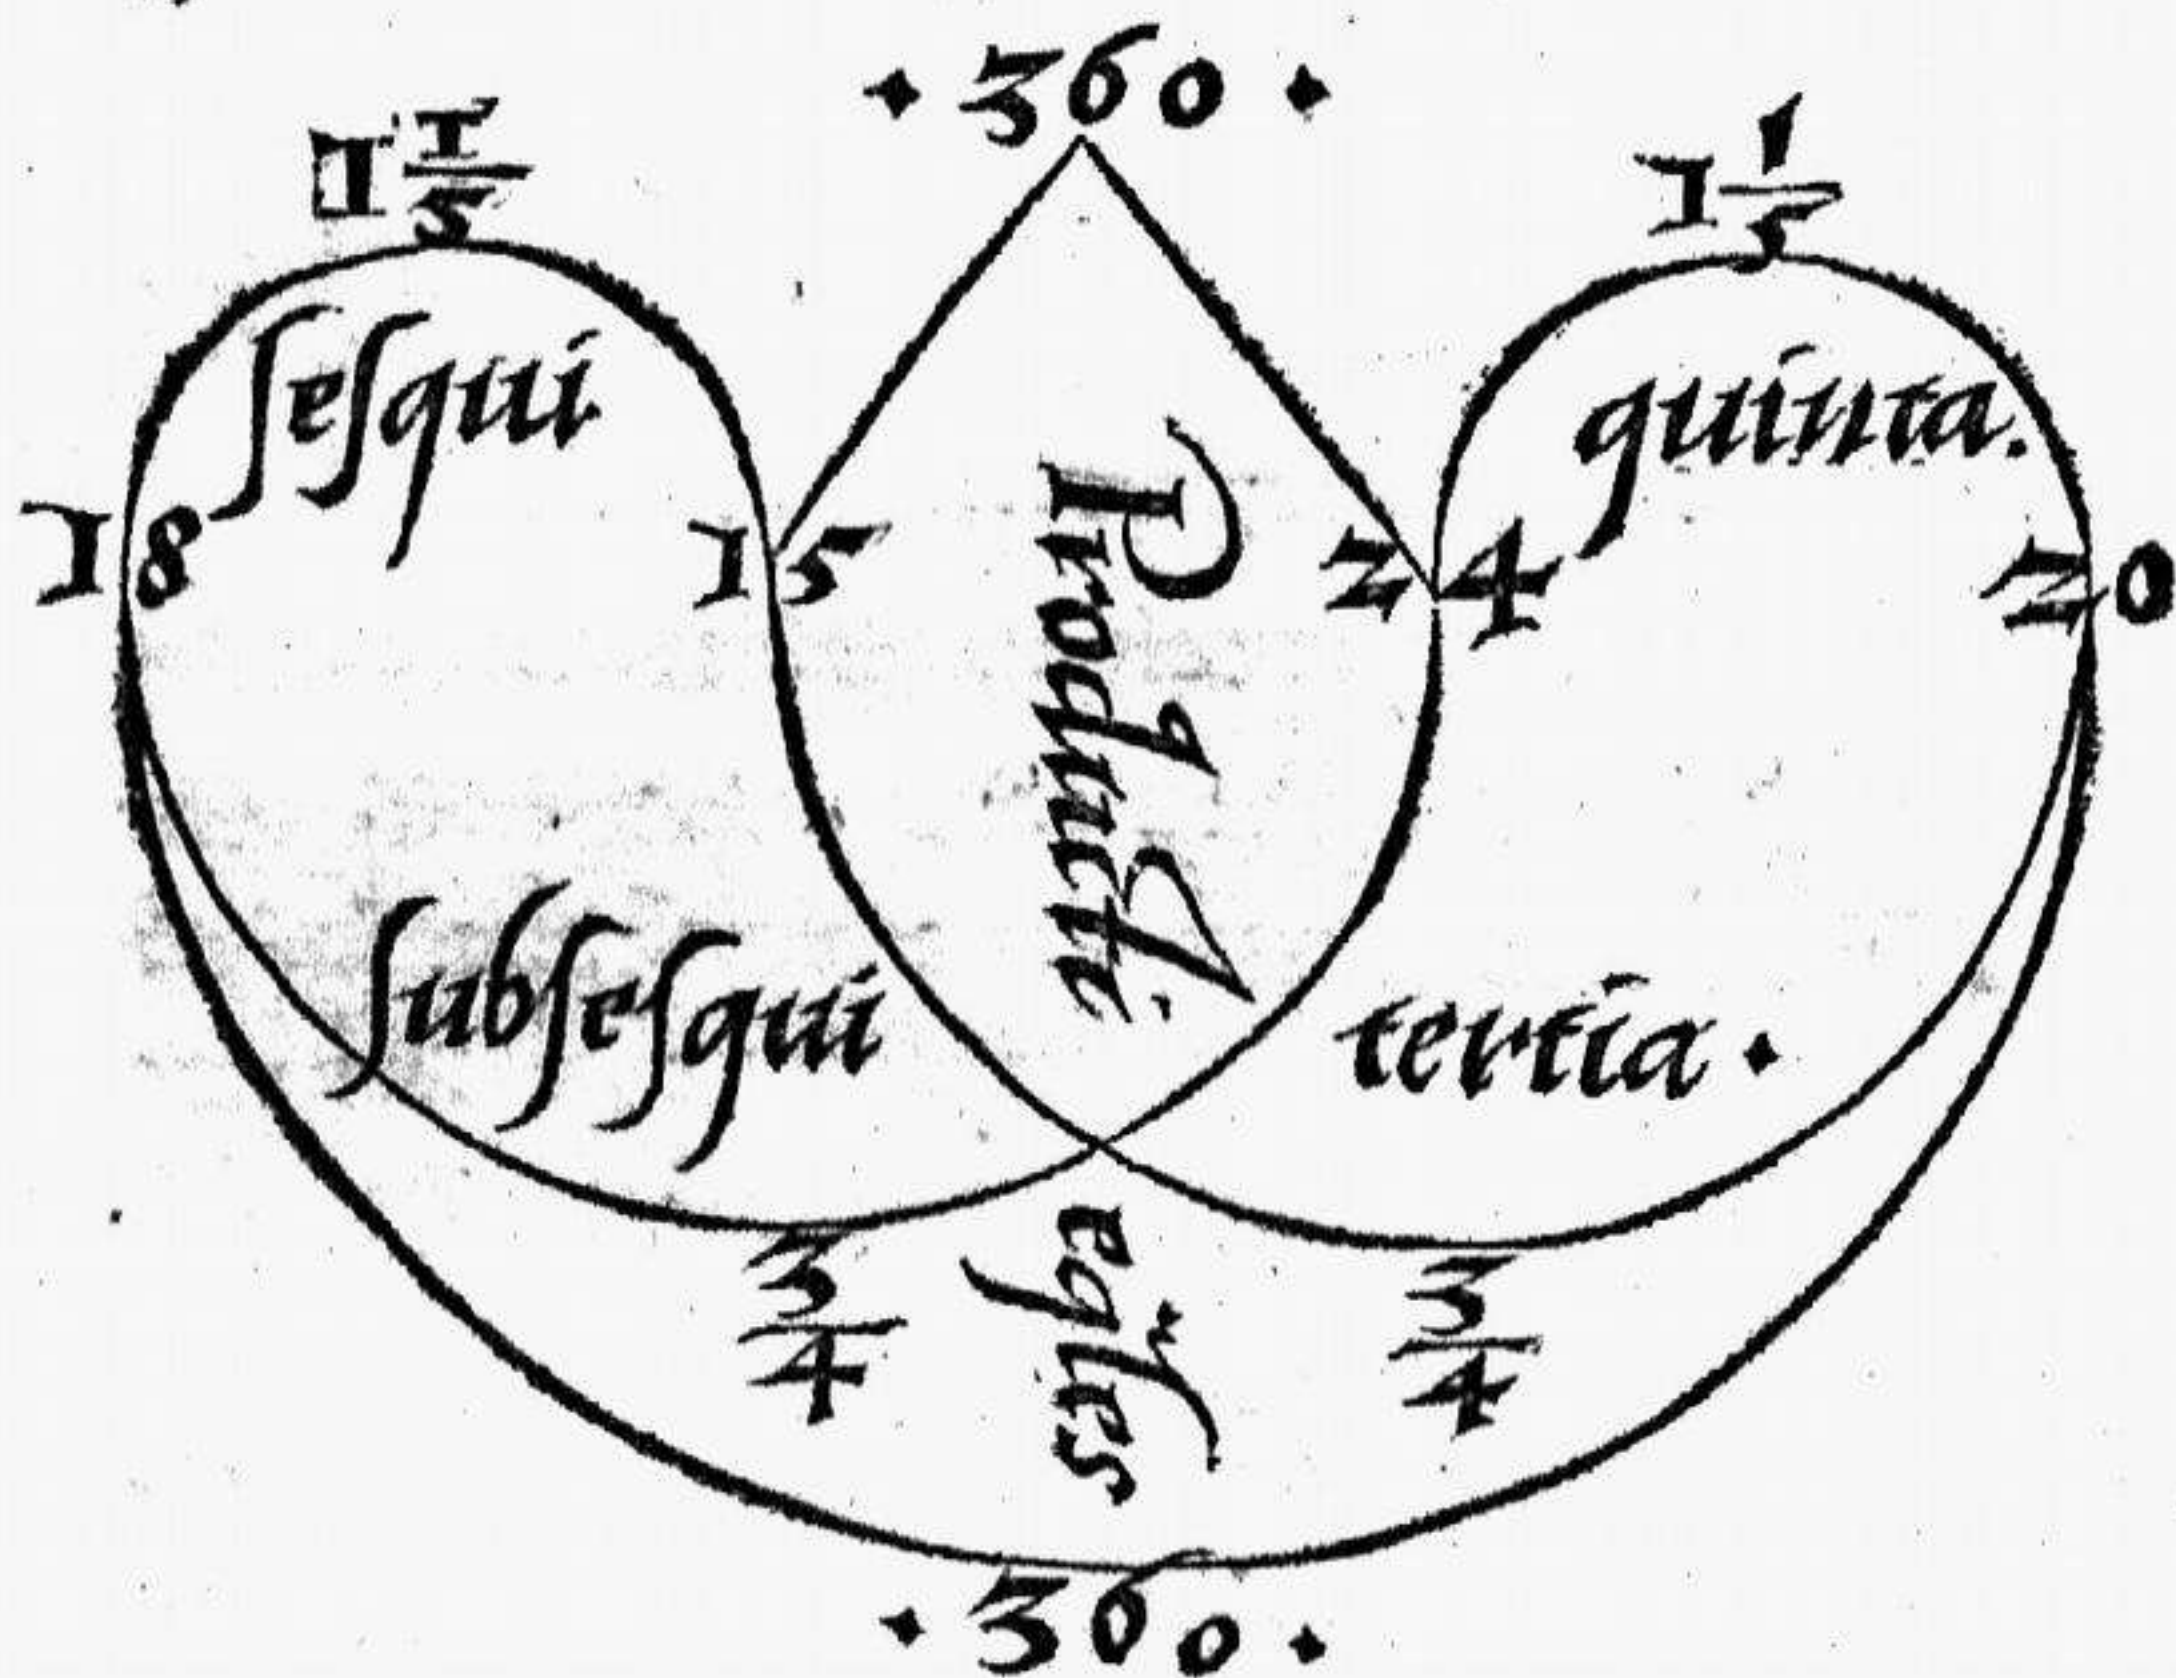 · 360 ·
1 1/5 1 1/5
ſeſqui quinta.
18 15 24 20
Producti
ſubſeſqui tertia .
3/4 3/4
· 360 ·